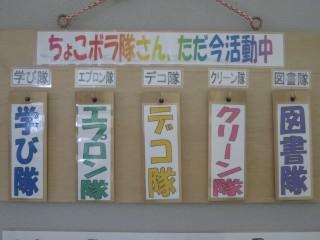 ちょこボラ隊さん、ただ今活動中
学び隊
エプロン隊
デコ隊
クリーン隊
図書隊
学び隊
エプロン隊
デコ隊
クリーン隊
図書隊